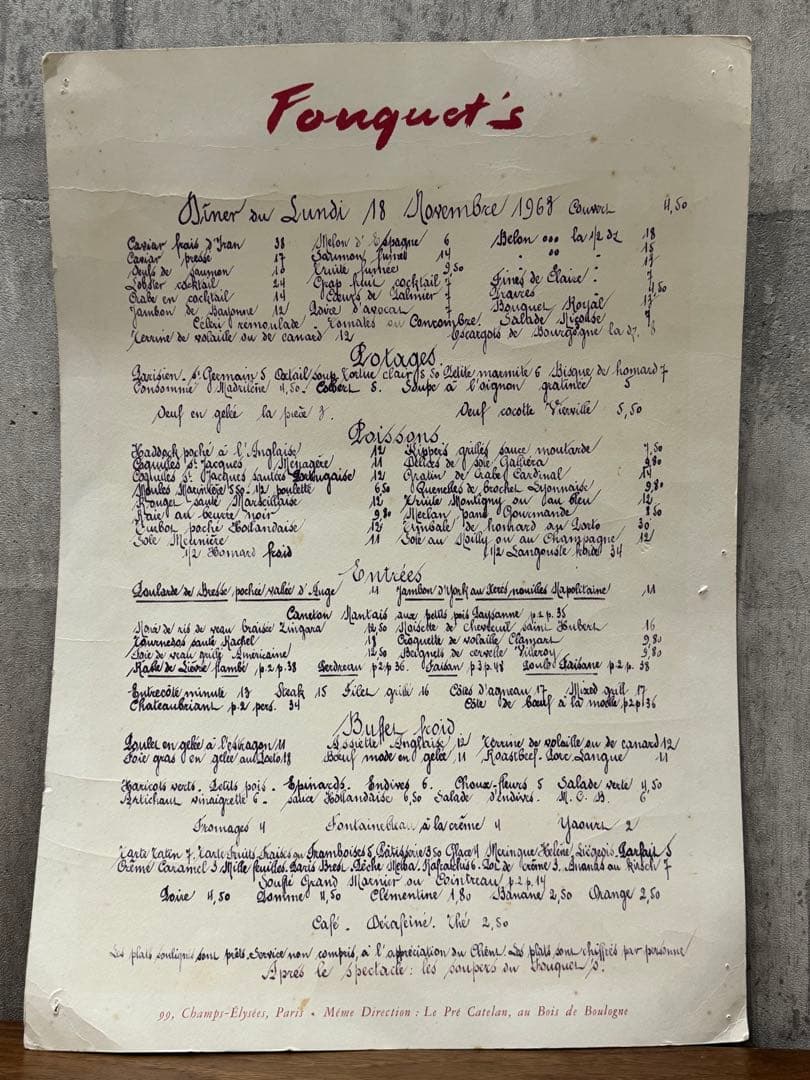 Fouquet's
Dîner du Lundi 18 Novembre 1968 Couvert 4,50
Caviar frais d'Iran 38 Melon d'Espagne 6 Belon ooo la 1/2 dz 18
Caviar pressé 17 Saumon fumé 14 " oo " 15
Oeufs de saumon 10 Truite fumée 9,50
Lobster cocktail 24 Grap fruit cocktail 7 Fines de Claire " 7
Crabe en cocktail 14 Cœurs de Palmier 7 Graves 4,50
Jambon de Bayonne 12 Poire d'avocat 7 Bouquet Royal 12
Céleri remoulade Tomates ou Concombre Salade Niçoise 7
Terrine de volaille ou de canard 12 Escargots de Bourgogne la dz. 8
Potages
Parisien. St Germain 5 Oxtail soup. Tortue clair 8,50 Petite marmite 6 Bisque de homard 7
Consommé Madrilène 4,50. Colbert 5. Soupe à l'oignon gratinée 5
Oeuf en gelée la pièce 3. Oeuf cocotte Vierville 5,50
Poissons
Haddock poché à l'Anglaise 12 Kippers grillés sauce moutarde 7,50
Coquilles St Jacques Ménagère 11 Délices de sole Galliéra 9,80
Coquilles St Jacques sautées Portugaise 12 Gratin de Crabe Cardinal 14
Moules Marinière 5,50. 1/2 poulette 6,50 Quenelles de brochet Lyonnaise 9,80
Rouget sauté Marseillaise 12 Truite Montigny ou au bleu 12
Raie au beurre noir 9,80 Merlan pané Gourmande 8,50
Turbot poché Hollandaise 12 Timbale de homard au Porto 30
Sole Meunière 11 Sole au Noilly ou au Champagne 12
1/2 Homard froid 1/2 Langouste froide 34
Entrées
Poularde de Bresse pochée vallée d'Auge 11 Jambon d'York au Xérès nouilles Napolitaine 11
Caneton Nantais aux petits pois Paysanne p.2p. 35
Noix de ris de veau braisée Zingara 12,50 Noisette de chevreuil saint Hubert 16
Tournedos sauté Rachel 18 Croquette de volaille Clamart 9,80
Foie de veau grillé Américaine 12,50 Beignets de cervelle Villeroy 9,80
Rable de Lièvre flambé p.2.p. 38 Perdreau p2p 36. Faisan p3p. 48 Poule Faisane p.2.p. 38
Entrecôte minute 13 Steak 15 Filet grillé 16 Côtes d'agneau 17 Mixed grill 17
Chateaubriant p.2 pers. 34 Côte de bœuf à la moelle p2p 36
Buffet froid
Poulet en gelée à l'estragon 11 Assiette Anglaise 12 Terrine de volaille ou de canard 12
Foie gras en gelée au Porto 18 Bœuf mode en gelée 11 Roastbeef. Porc. Langue 11
Haricots verts. Petits pois. Epinards. Endives 6. Choux-fleurs 5 Salade verte 4,50
Artichaut vinaigrette 6. sauce Hollandaise 6,50 Salade d'endives. M.C.B. 6
Fromages 4 Fontainebleau à la crème 4 Yaourt 2
Tarte Tatin 7. Tarte Fruits. Fraises ou Framboises 5. Pâtisserie 3,50 Glace 4 Meringue. Hélène. Liégeois. Parfait 5
Crème Caramel 3. Mille feuilles. Paris Brest. Pêche Melba. Rafraîchis 6. Pot de crème 3. Ananas au kirsch 7
Soufflé Grand Marnier ou Cointreau p.2p. 14
Poire 4,50 Pomme 4,50 Clémentine 1,80 Banane 2,50 Orange 2,50
Café. Décaféiné. Thé 2,50
Les plats soulignés sont prêts. Service non compris, à l'appréciation du Client. Les plats sont chiffrés par personne
Après le spectacle : les soupers du Fouquet's.
99, Champs-Élysées, Paris • Même Direction : Le Pré Catelan, au Bois de Boulogne